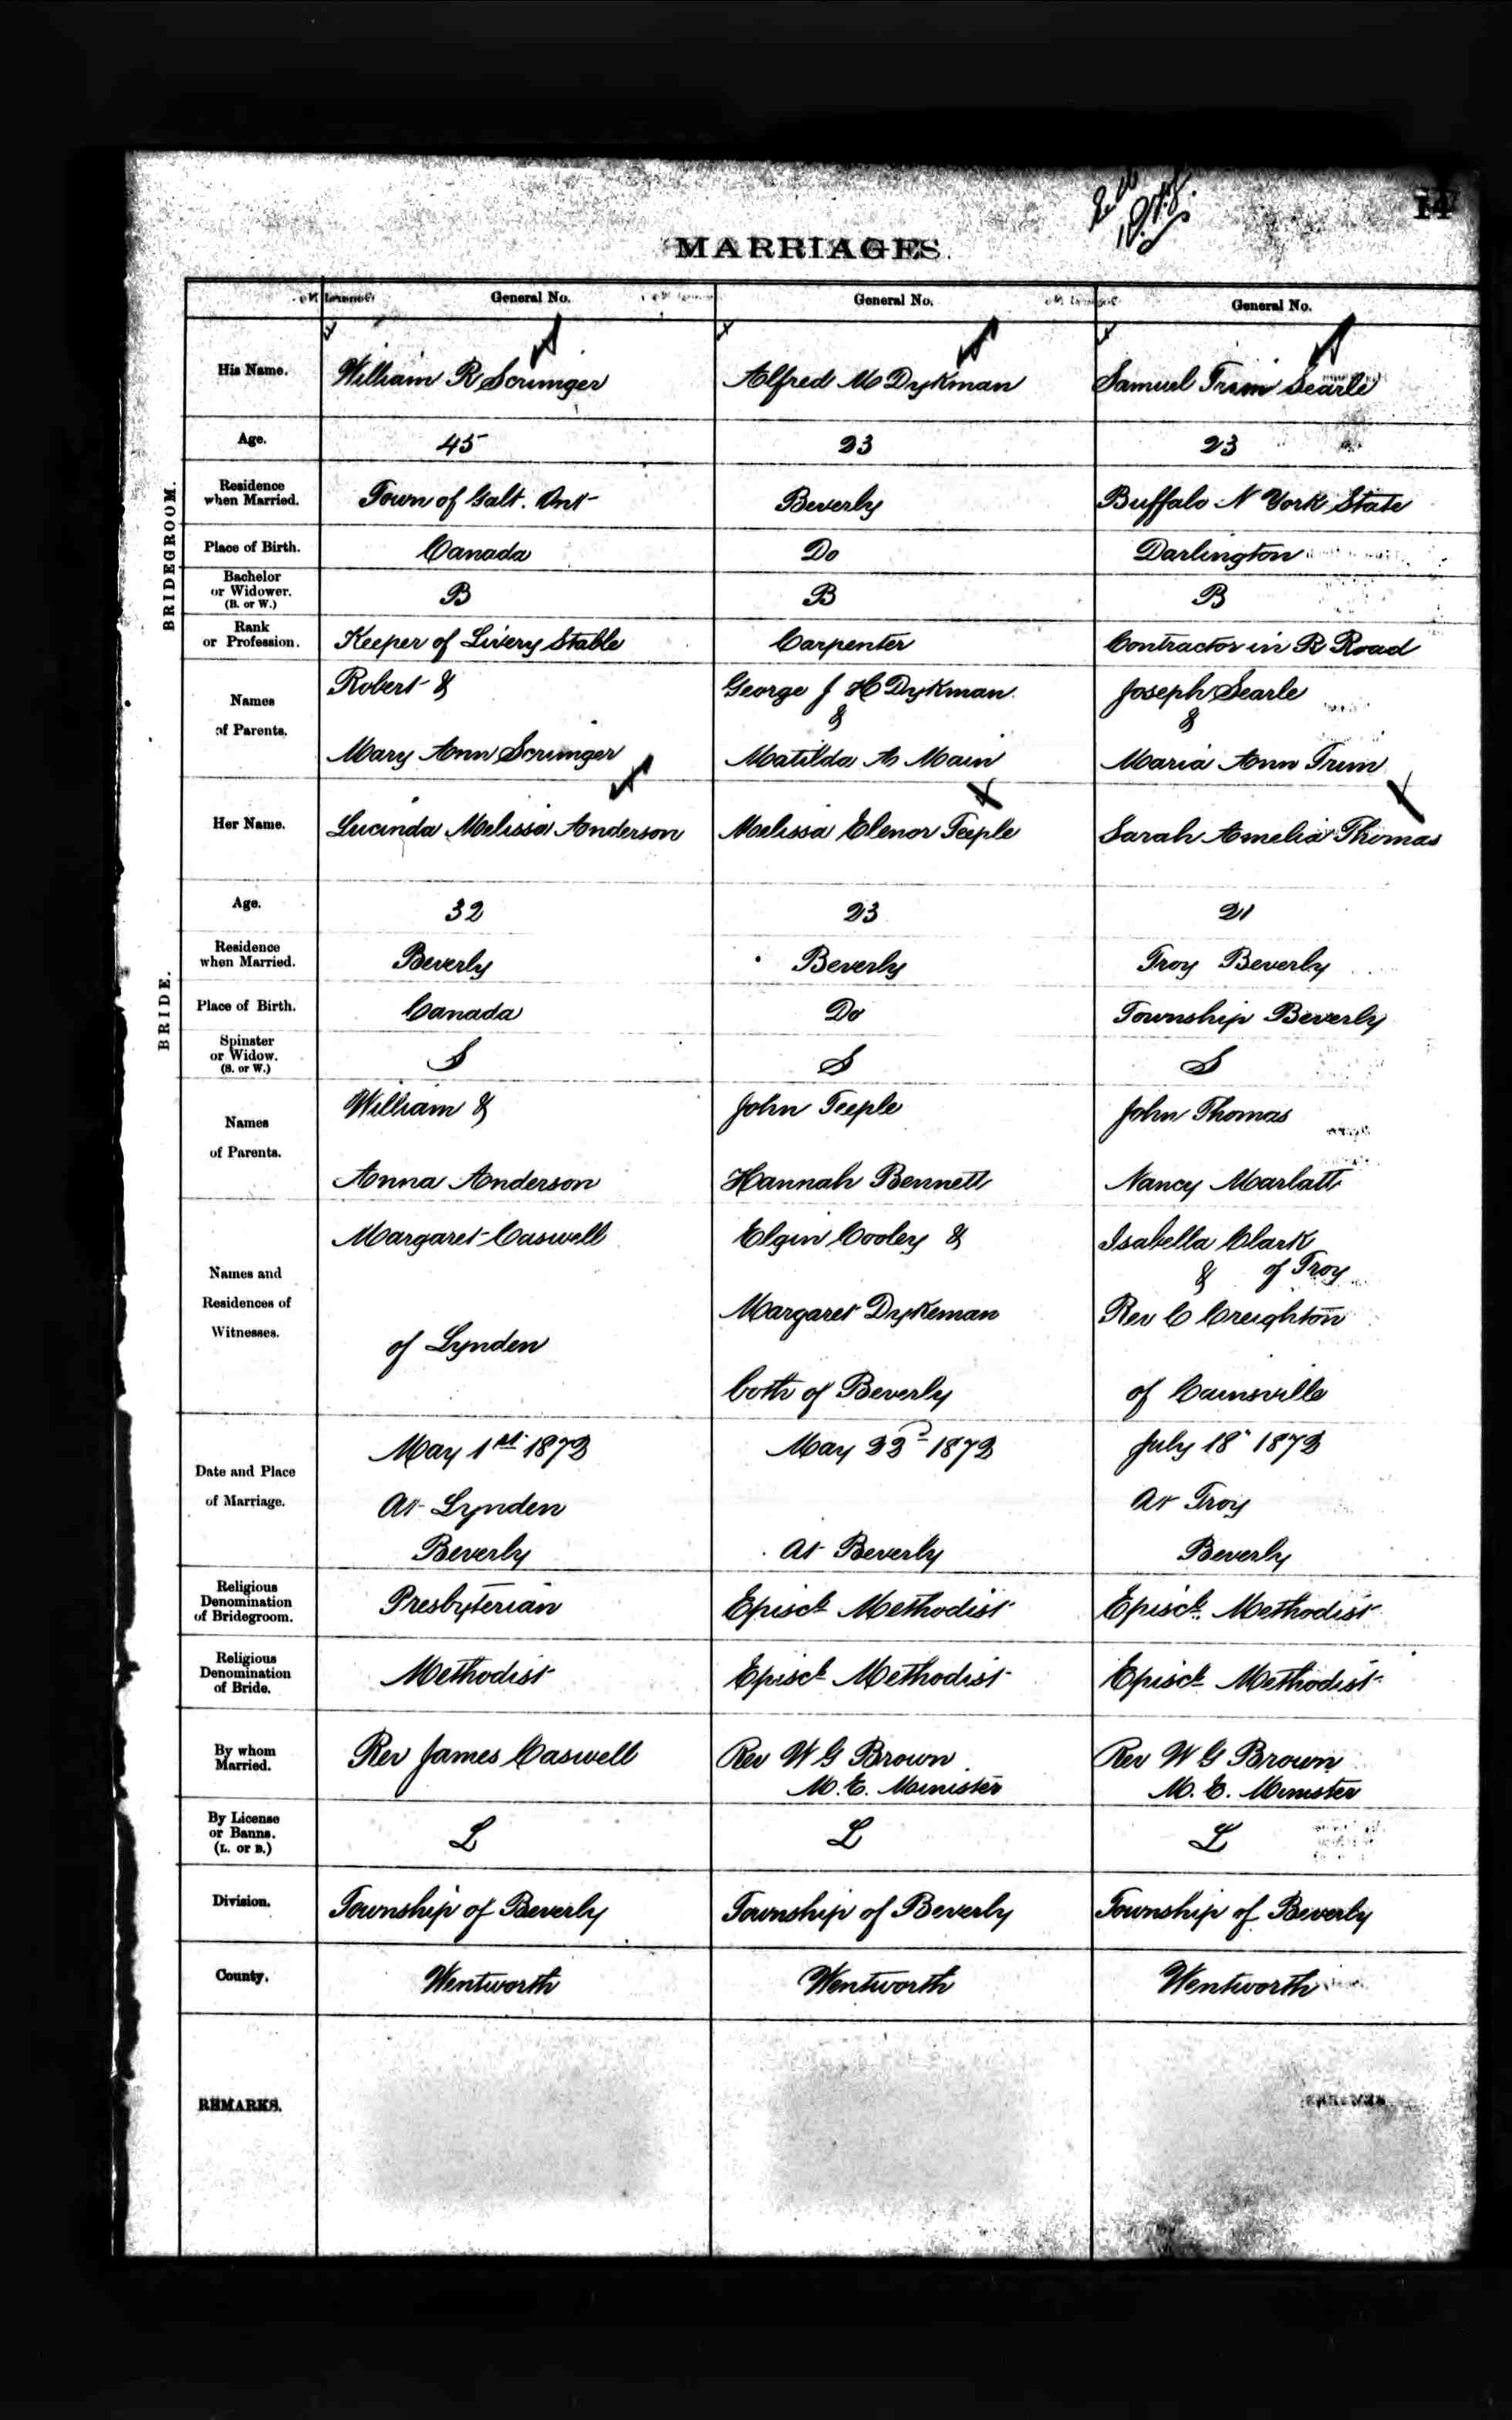 14
MARRIAGES.
General No. General No. General No.
BRIDEGROOM.
His Name. William R Scrimger Alfred M Dykman Samuel Trim Searle
Age. 45 23 23
Residence when Married. Town of Galt. Ont Beverly Buffalo N York State
Place of Birth. Canada Do Darlington
Bachelor or Widower. (B. or W.) B B B
Rank or Profession. Keeper of Livery Stable Carpenter Contractor in R Road
Names of Parents. Robert & George J H Dykman Joseph Searle
& &
Mary Ann Scrimger Matilda A Main Maria Ann Trim
BRIDE.
Her Name. Lucinda Melissa Anderson Melissa Elenor Teeple Sarah Amelia Thomas
Age. 32 23 21
Residence when Married. Beverly Beverly Troy Beverly
Place of Birth. Canada Do Township Beverly
Spinster or Widow. (S. or W.) S S S
Names of Parents. William & John Teeple John Thomas
Anna Anderson Hannah Bennett Nancy Marlatt
Names and Residences of Witnesses. Margaret Caswell Elgin Cooley & Isabella Clark
& of Troy
Margaret Dykeman Rev C Creighton
of Lynden
both of Beverly of Cainsville
Date and Place of Marriage. May 1st 1873 May 23d 1873 July 18" 1873
At Lynden At Troy
Beverly At Beverly Beverly
Religious Denomination of Bridegroom. Presbyterian Episcl Methodist Episcl Methodist
Religious Denomination of Bride. Methodist Episcl Methodist Episcl Methodist
By whom Married. Rev James Caswell Rev W G Brown Rev W G Brown
M. E. Minister M. E. Minister
By License or Banns. (L. or B.) L L L
Division. Township of Beverly Township of Beverly Township of Beverly
County. Wentworth Wentworth Wentworth
REMARKS.